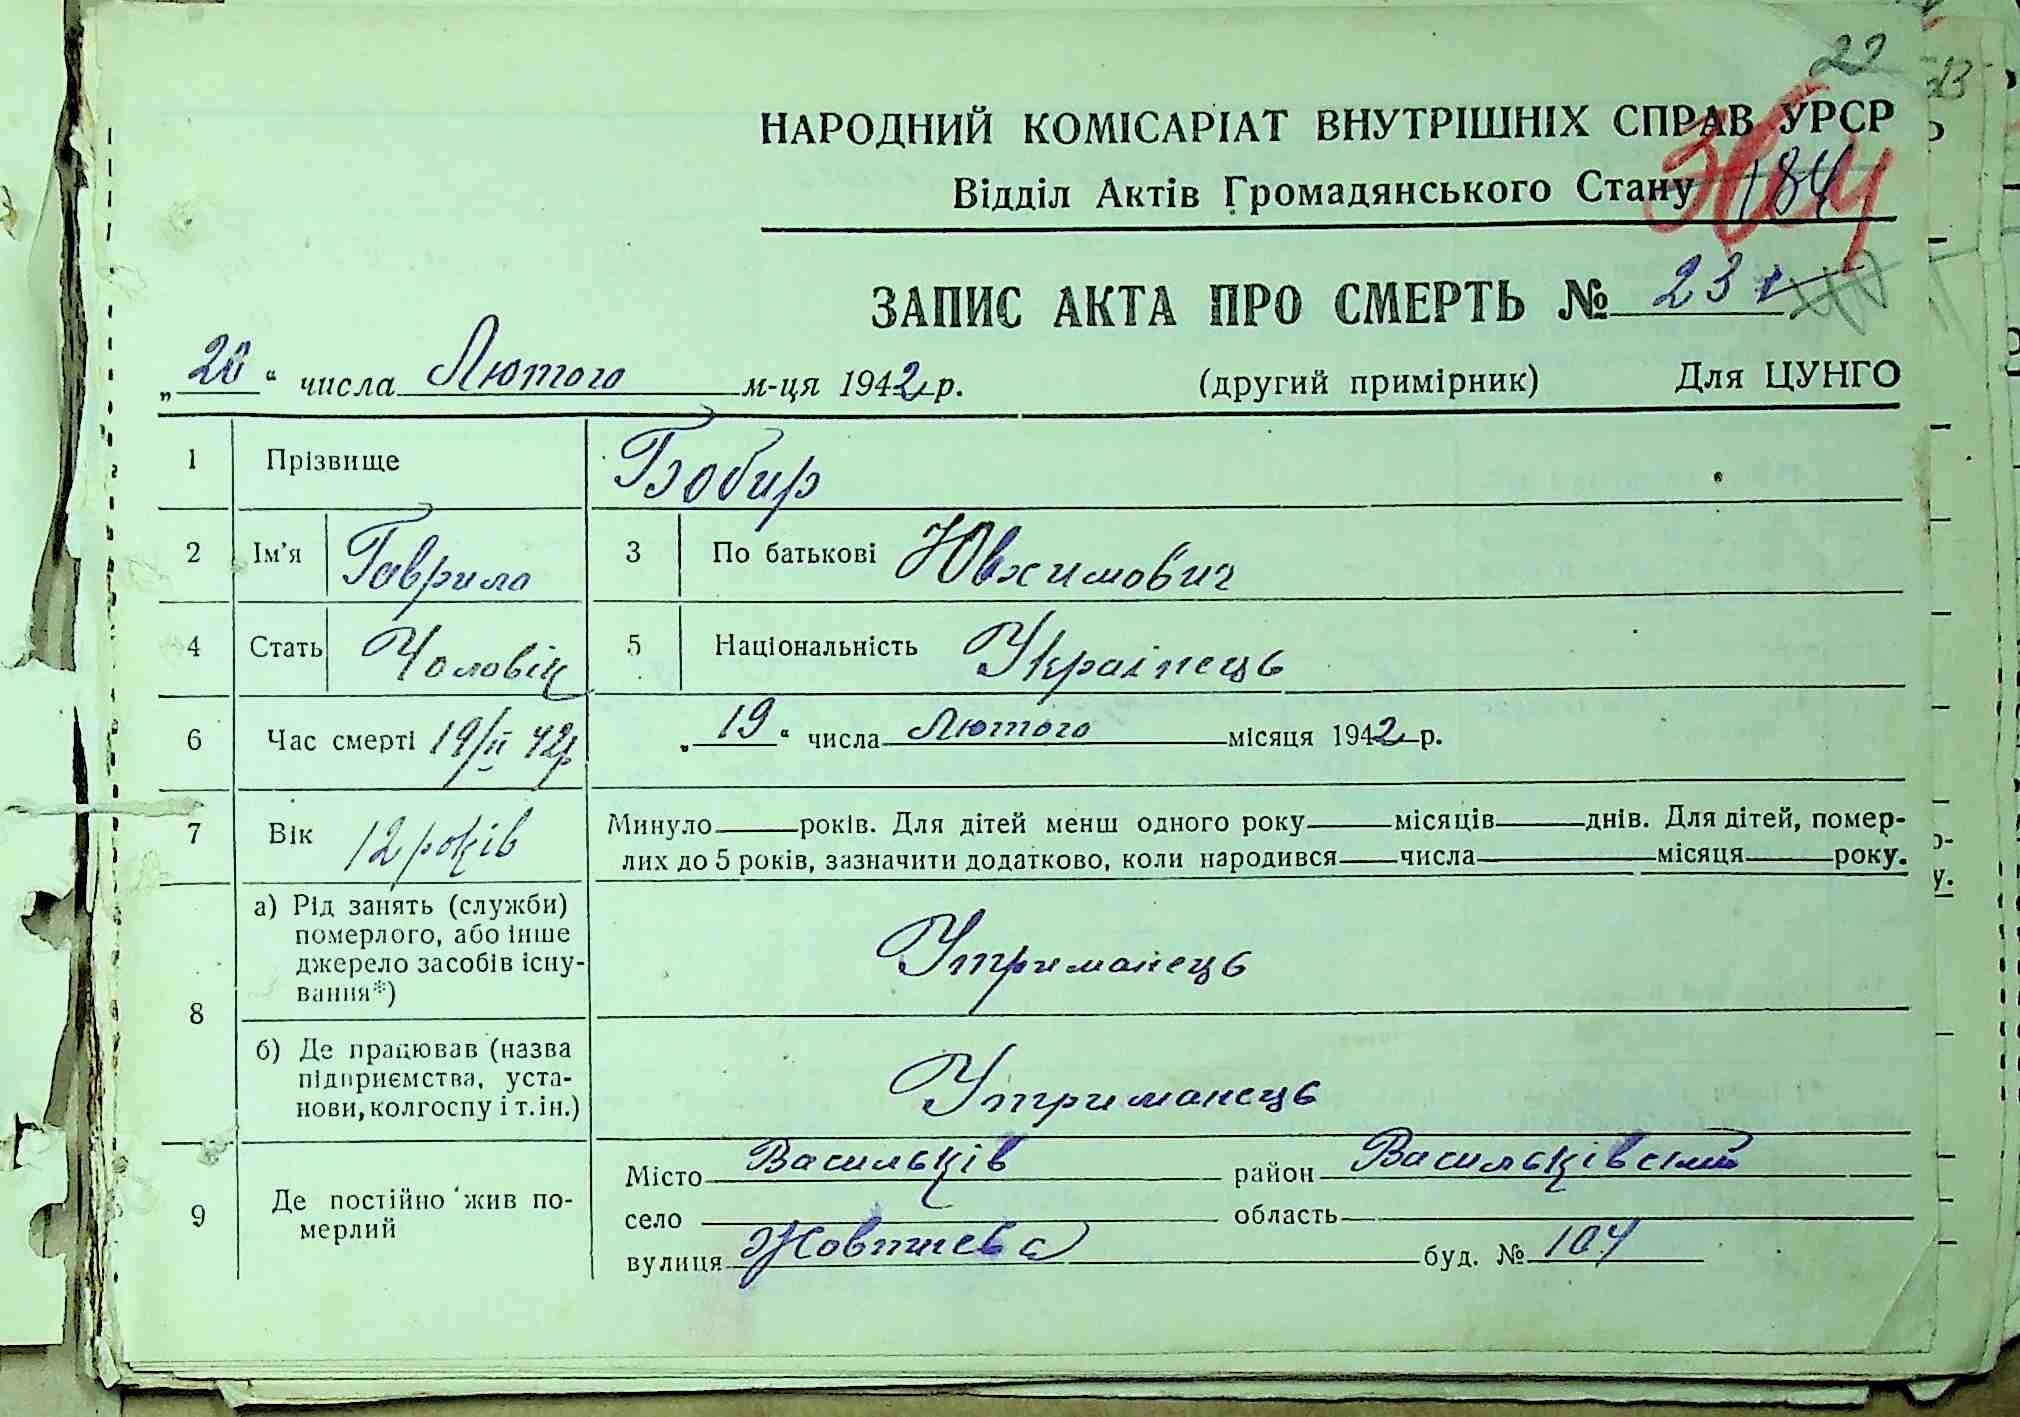 22
НАРОДНИЙ КОМІСАРІАТ ВНУТРІШНІХ СПРАВ УРСР
Відділ Актів Громадянського Стану 184
ЗАПИС АКТА ПРО СМЕРТЬ № 23
„20“ числа Лютого м-ця 1942 р. (другий примірник) Для ЦУНГО
1 Прізвище Бобир
2 Ім’я Гаврило 3 По батьковіЮвхимович
4 Стать Чоловік 5 Національність Українець
6 Час смерті 19/ІІ 42р „19“ числа Лютого місяця 1942 р.
7 Вік 12 років Минуло років. Для дітей менш одного року місяців днів. Для дітей, помер-
лих до 5 років, зазначити додатково, коли народився числа місяця року.
8 а) Рід занять (служби)
померлого, або інше
джерело засобів існу-
вання*) Утриманець
б) Де працював (назва
підприємства, уста-
нови, колгоспу і т. ін.) Утриманець
9 Де постійно жив по-
мерлий
Місто Васильків район Васильківский
село область
вулиця Жовтнева буд. № 104